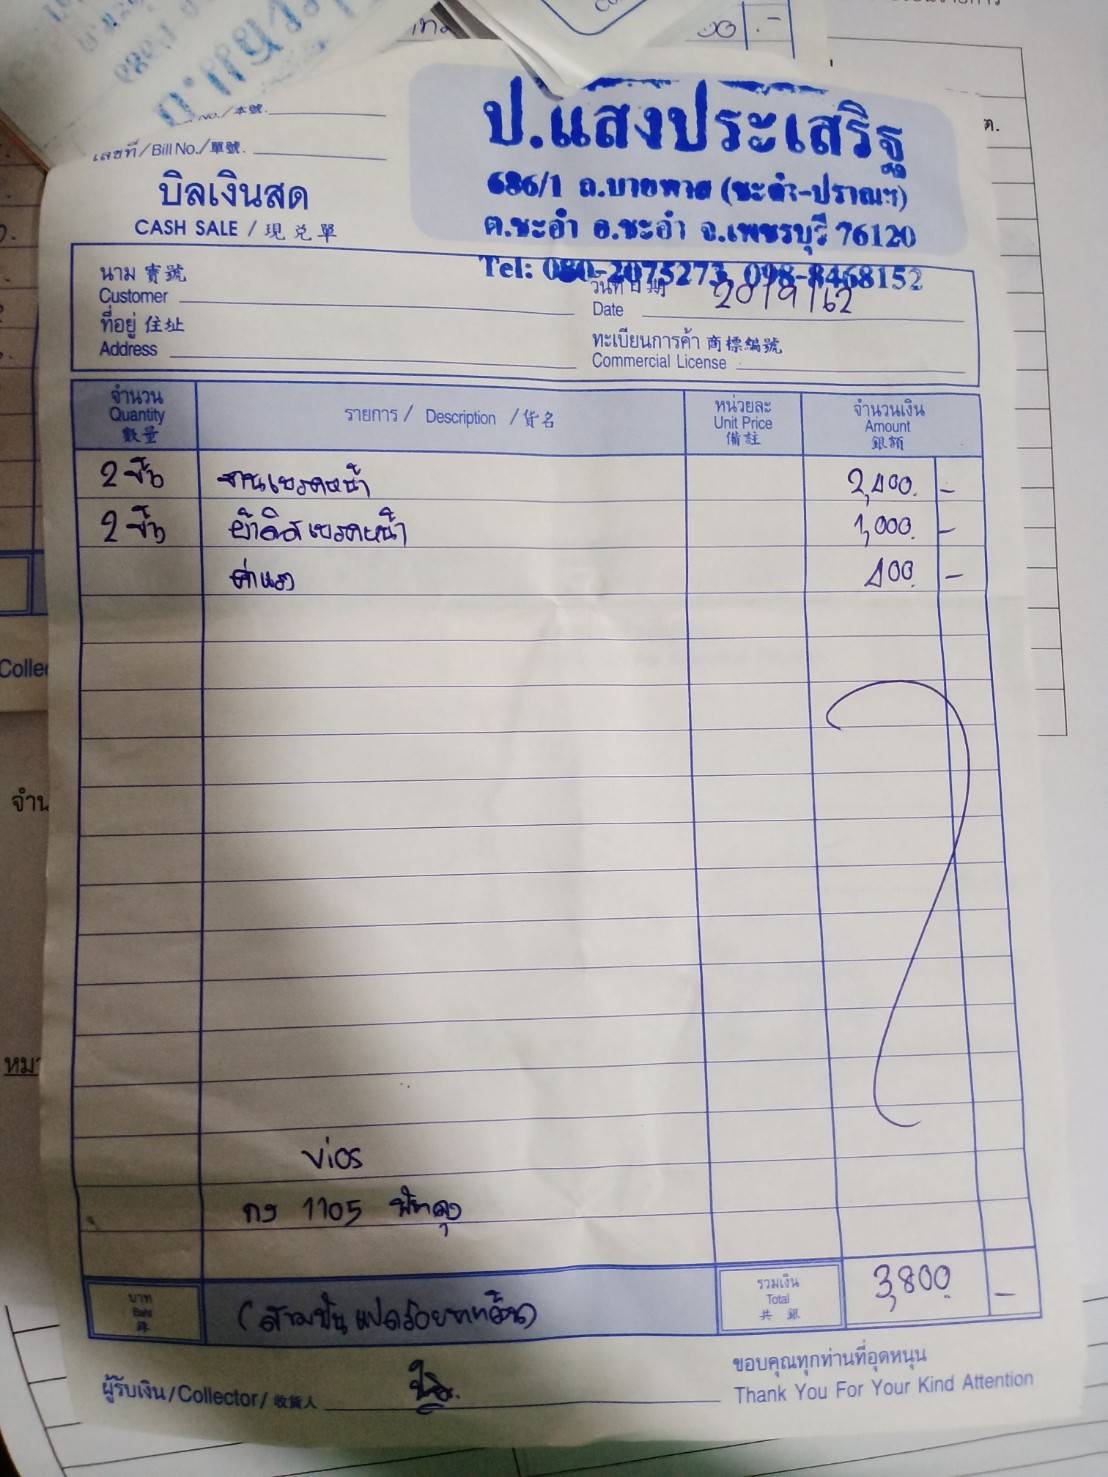 No./本號.
เลขที่/Bill No./單號.
บิลเงินสด
CASH SALE / 現兌單
ป.แสงประเสริฐ
686/1 ถ.บายพาส (ชะอำ-ปราณฯ)
ต.ชะอำ อ.ชะอำ จ.เพชรบุรี 76120
Tel: 080-2075273, 098-8468152
นาม 寶號
Customer
วันที่ 日期 20/9/62
Date
ที่อยู่ 住址
Address
ทะเบียนการค้า 商標編號
Commercial License
จำนวน
Quantity
數量
รายการ / Description / 貨名
หน่วยละ
Unit Price
備註
จำนวนเงิน
Amount
銀額
2 ชิ้น จานเบรคหน้า 2,400.-
2 ชิ้น ผ้าดิสเบรคหน้า 1,000.-
ค่าแรง 400.-
vios
กง 1105 พัทลุง
บาท
Baht
(สามพันแปดร้อยบาทถ้วน)
รวมเงิน
Total
共銀
3,800.-
ผู้รับเงิน/Collector/收貨人
ขอบคุณทุกท่านที่อุดหนุน
Thank You For Your Kind Attention
Collec
จำน
หมา